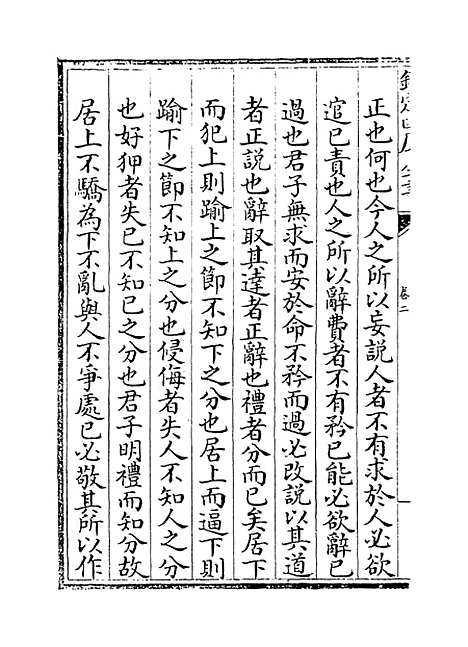 欽定四庫全書
卷二
正也何也今人之所以妄説人者不有求於人必欲
逭已責也人之所以辭費者不有矜已能必欲辭已
過也君子無求而安於命不矜而過必改説以其道
者正説也辭取其達者正辭也禮者分而已矣居下
而犯上則踰上之節不知下之分也居上而逼下則
踰下之節不知上之分也侵侮者失人不知人之分
也好狎者失已不知已之分也君子明禮而知分故
居上不驕為下不亂與人不爭處已必敬其所以作